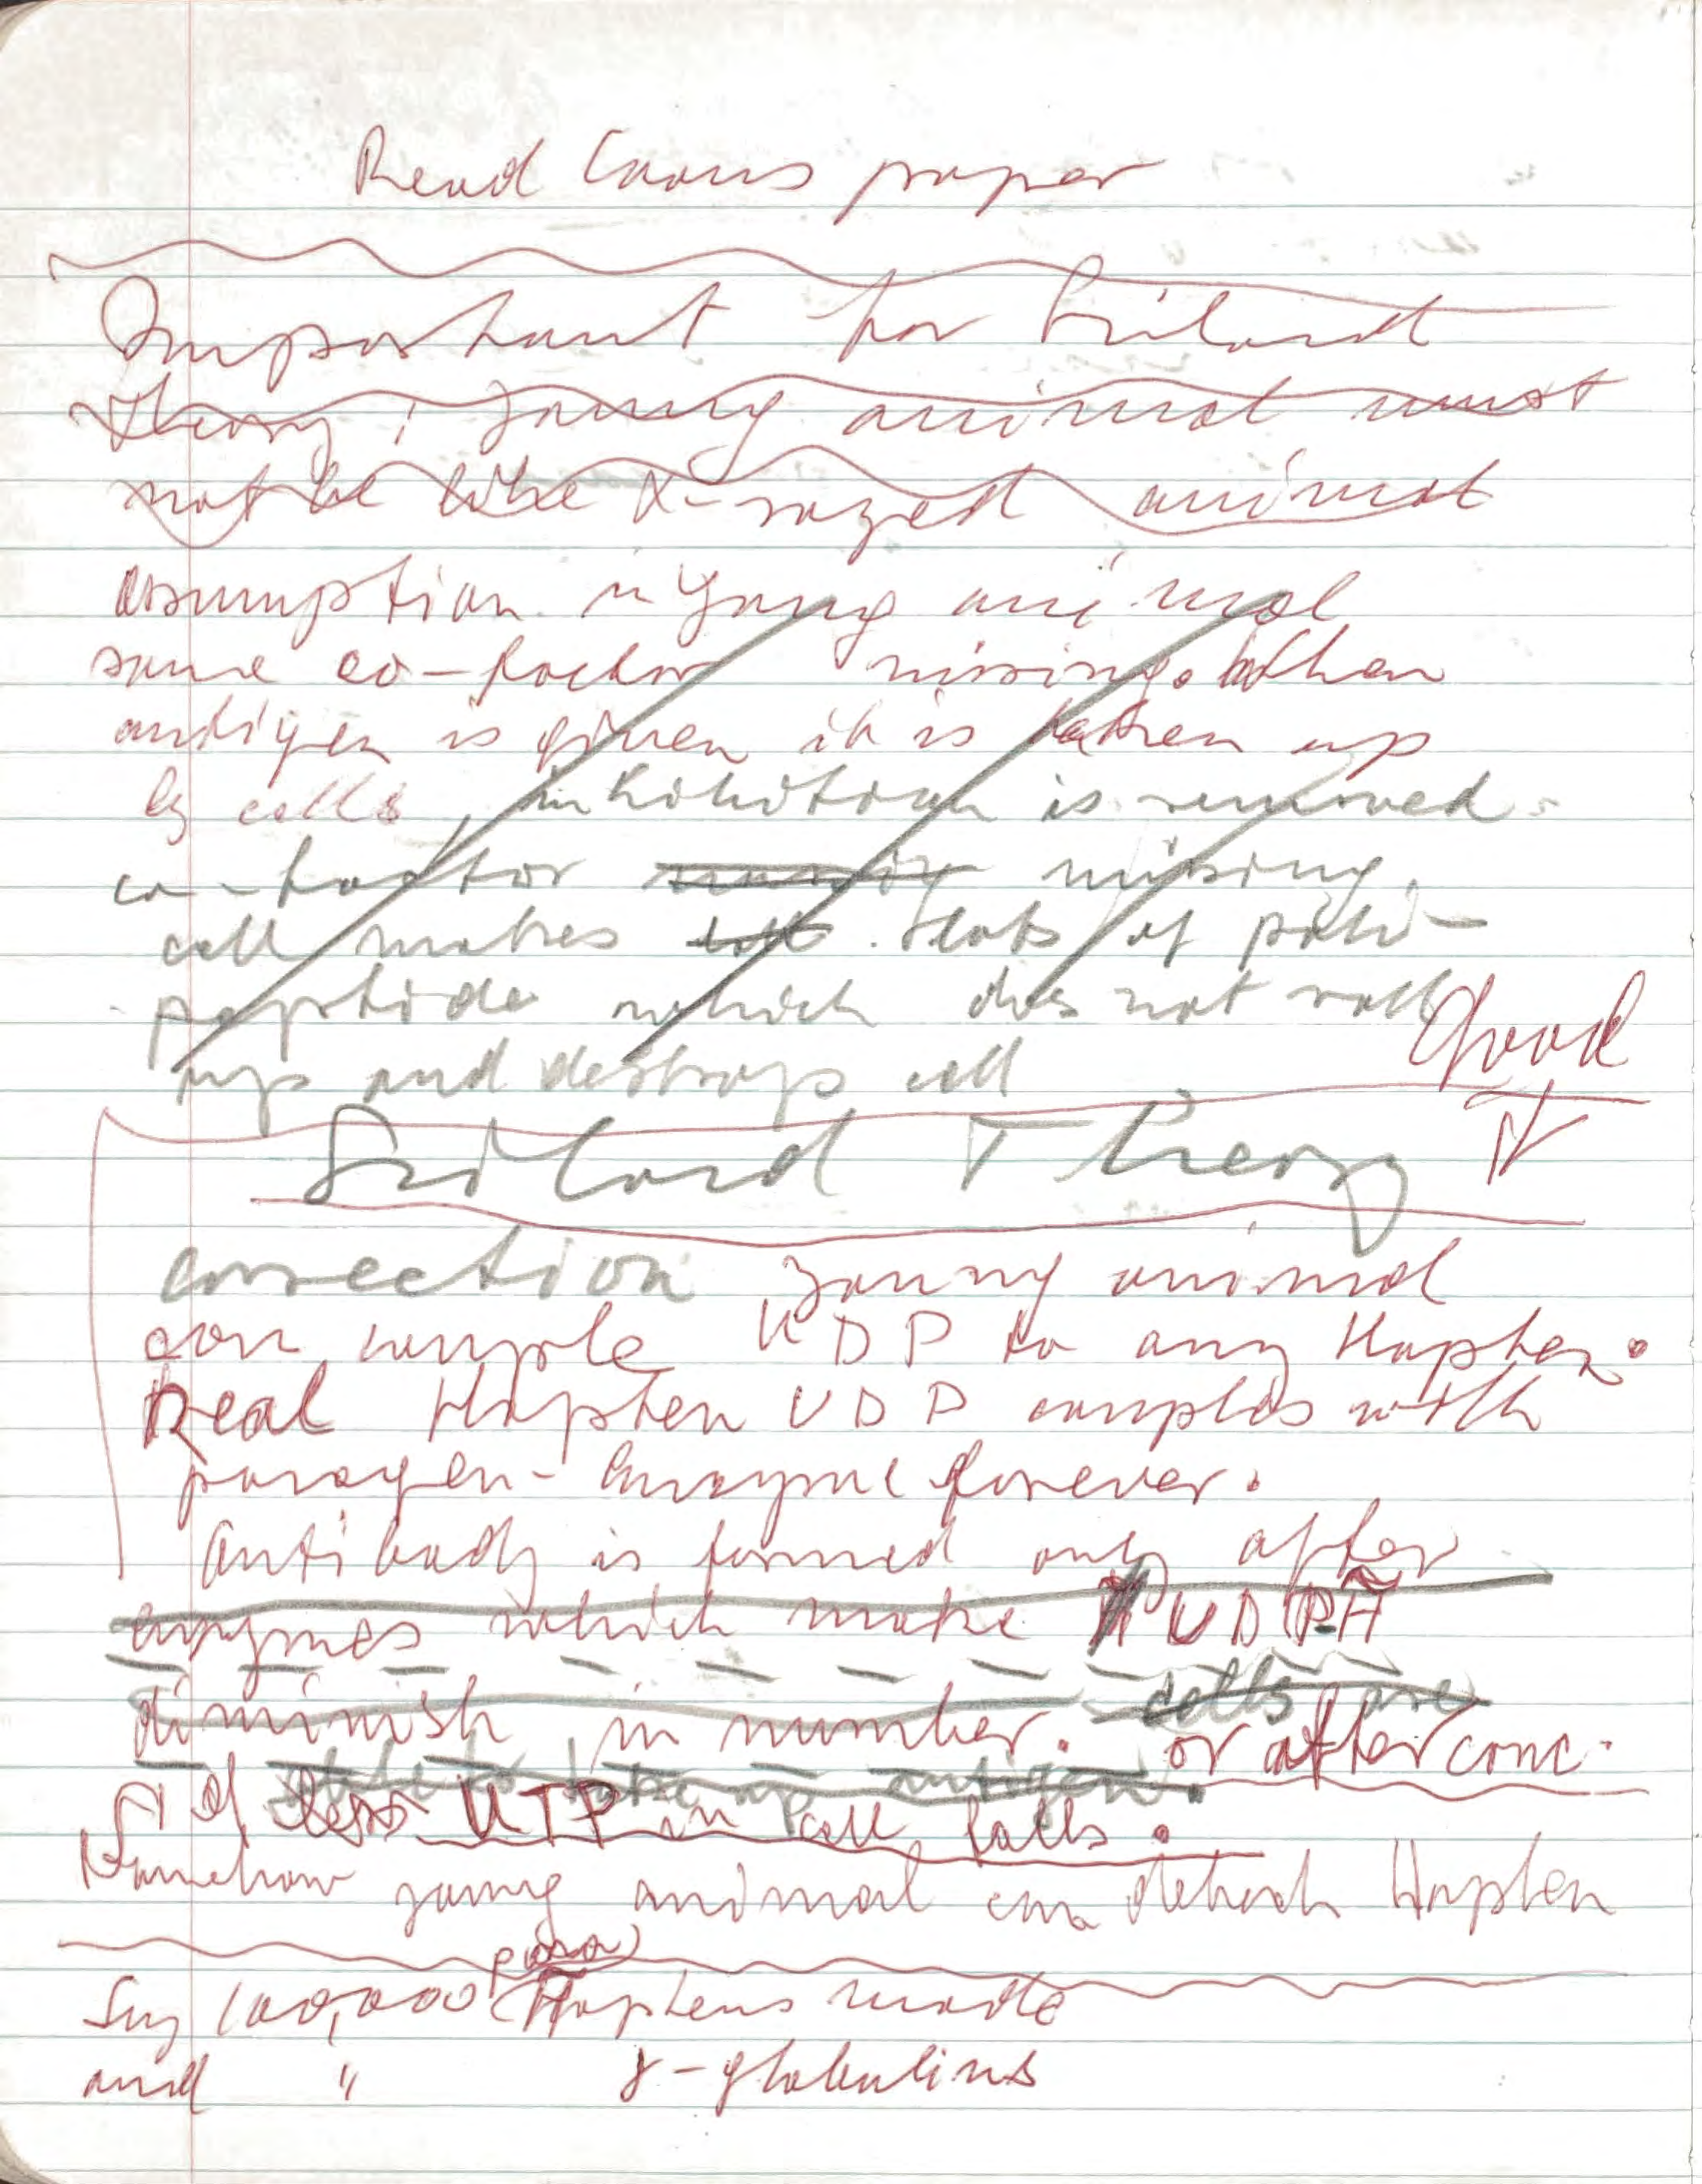 Read Coons paper
Important for Szilard
theory: young animal must
not be like X-rayed animal
assumption in young animal
some co-factor missing. When
antigen is given it is taken up
by cells, inhibition is removed.
co-factor missing,
cell makes lots of poli-
peptide which does not roll
up and destroys cell
Good
Szilard Theory IV
correction young animal
can couple UDP to any Hapten.
Real Hapten UDP couples with
paragen-enzyme forever.
Antibody is formed only after
enzymes which make UDPH
diminish in number. cells are
or after conc.
of less UTP in cell falls.
able to take up antigen.
Somehow young animal can detach Hapten
para
Say 100,000 Haptens made
and " γ-globulins